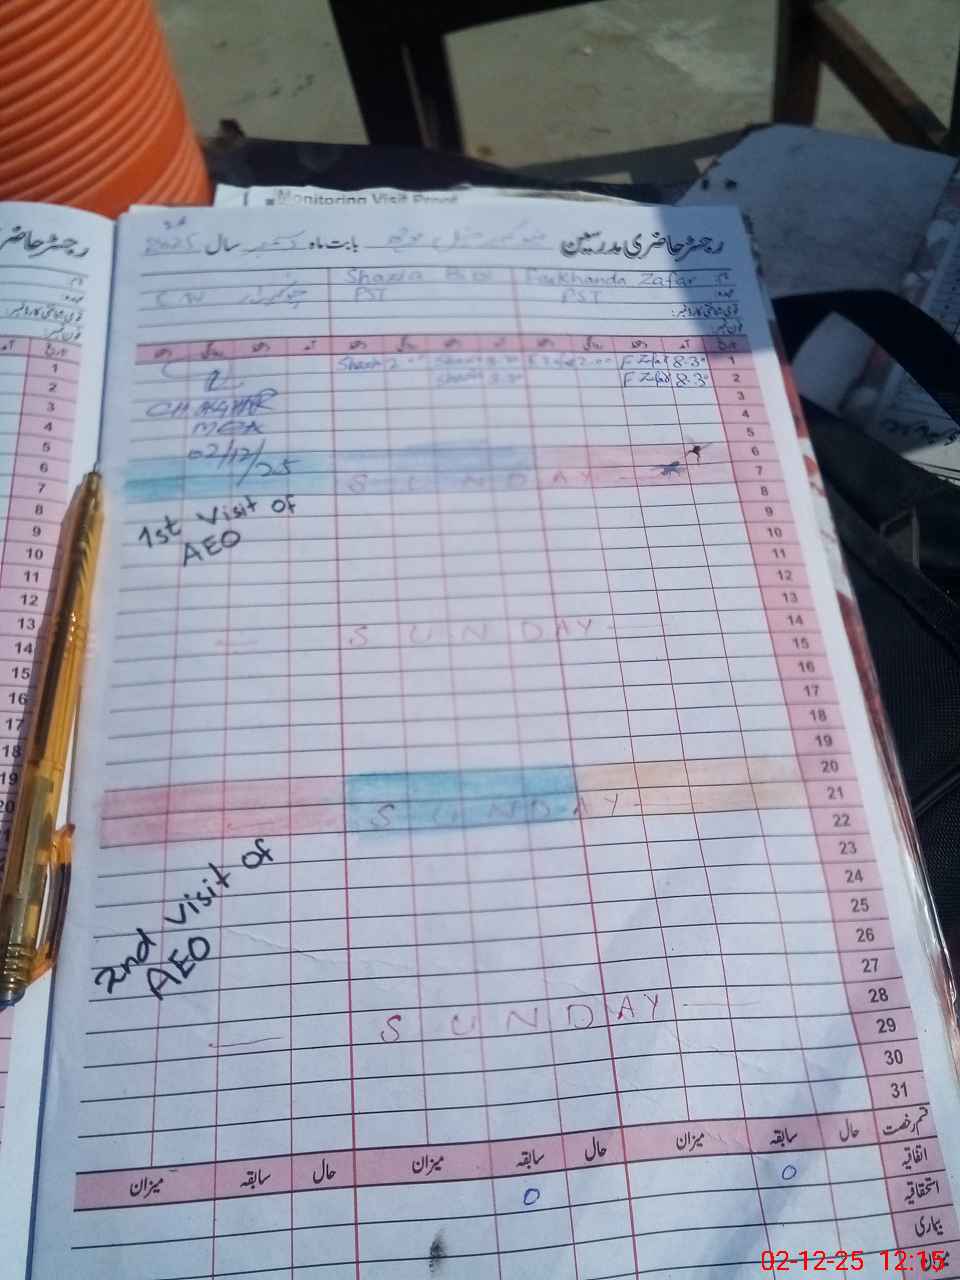 Monitoring Visit Proof
رجسٹر حاضری مدرسین
بابت ماہ
سال 2025
Shazia Bibi
Farkhanda Zafar
نام
C.W
PST
PST
عہدہ
قومی شناختی کارڈ نمبر:
فون نمبر:
تاریخ
آمد
دستخط
روانگی
دستخط
2.00
8.30
2.00
F Zafar 8.30
1
8.30
F Zafar 8.30
2
CH ASGHAR
3
MEA
4
5
02/12/25
6
S U N D A Y
7
1st Visit of
AEO
8
9
10
11
12
13
S U N D A Y
14
15
16
17
18
19
20
S U N D A Y
21
22
2nd Visit of
AEO
23
24
25
26
27
S U N D A Y
28
29
30
31
قسم رخصت
حال
سابقہ
میزان
حال
سابقہ
میزان
حال
سابقہ
میزان
اتفاقیہ
0
0
استحقاقیہ
بیماری
میزان
رجسٹر حاضر
1
2
3
4
5
6
7
8
9
10
11
12
13
14
15
16
17
18
19
02-12-25 12:15